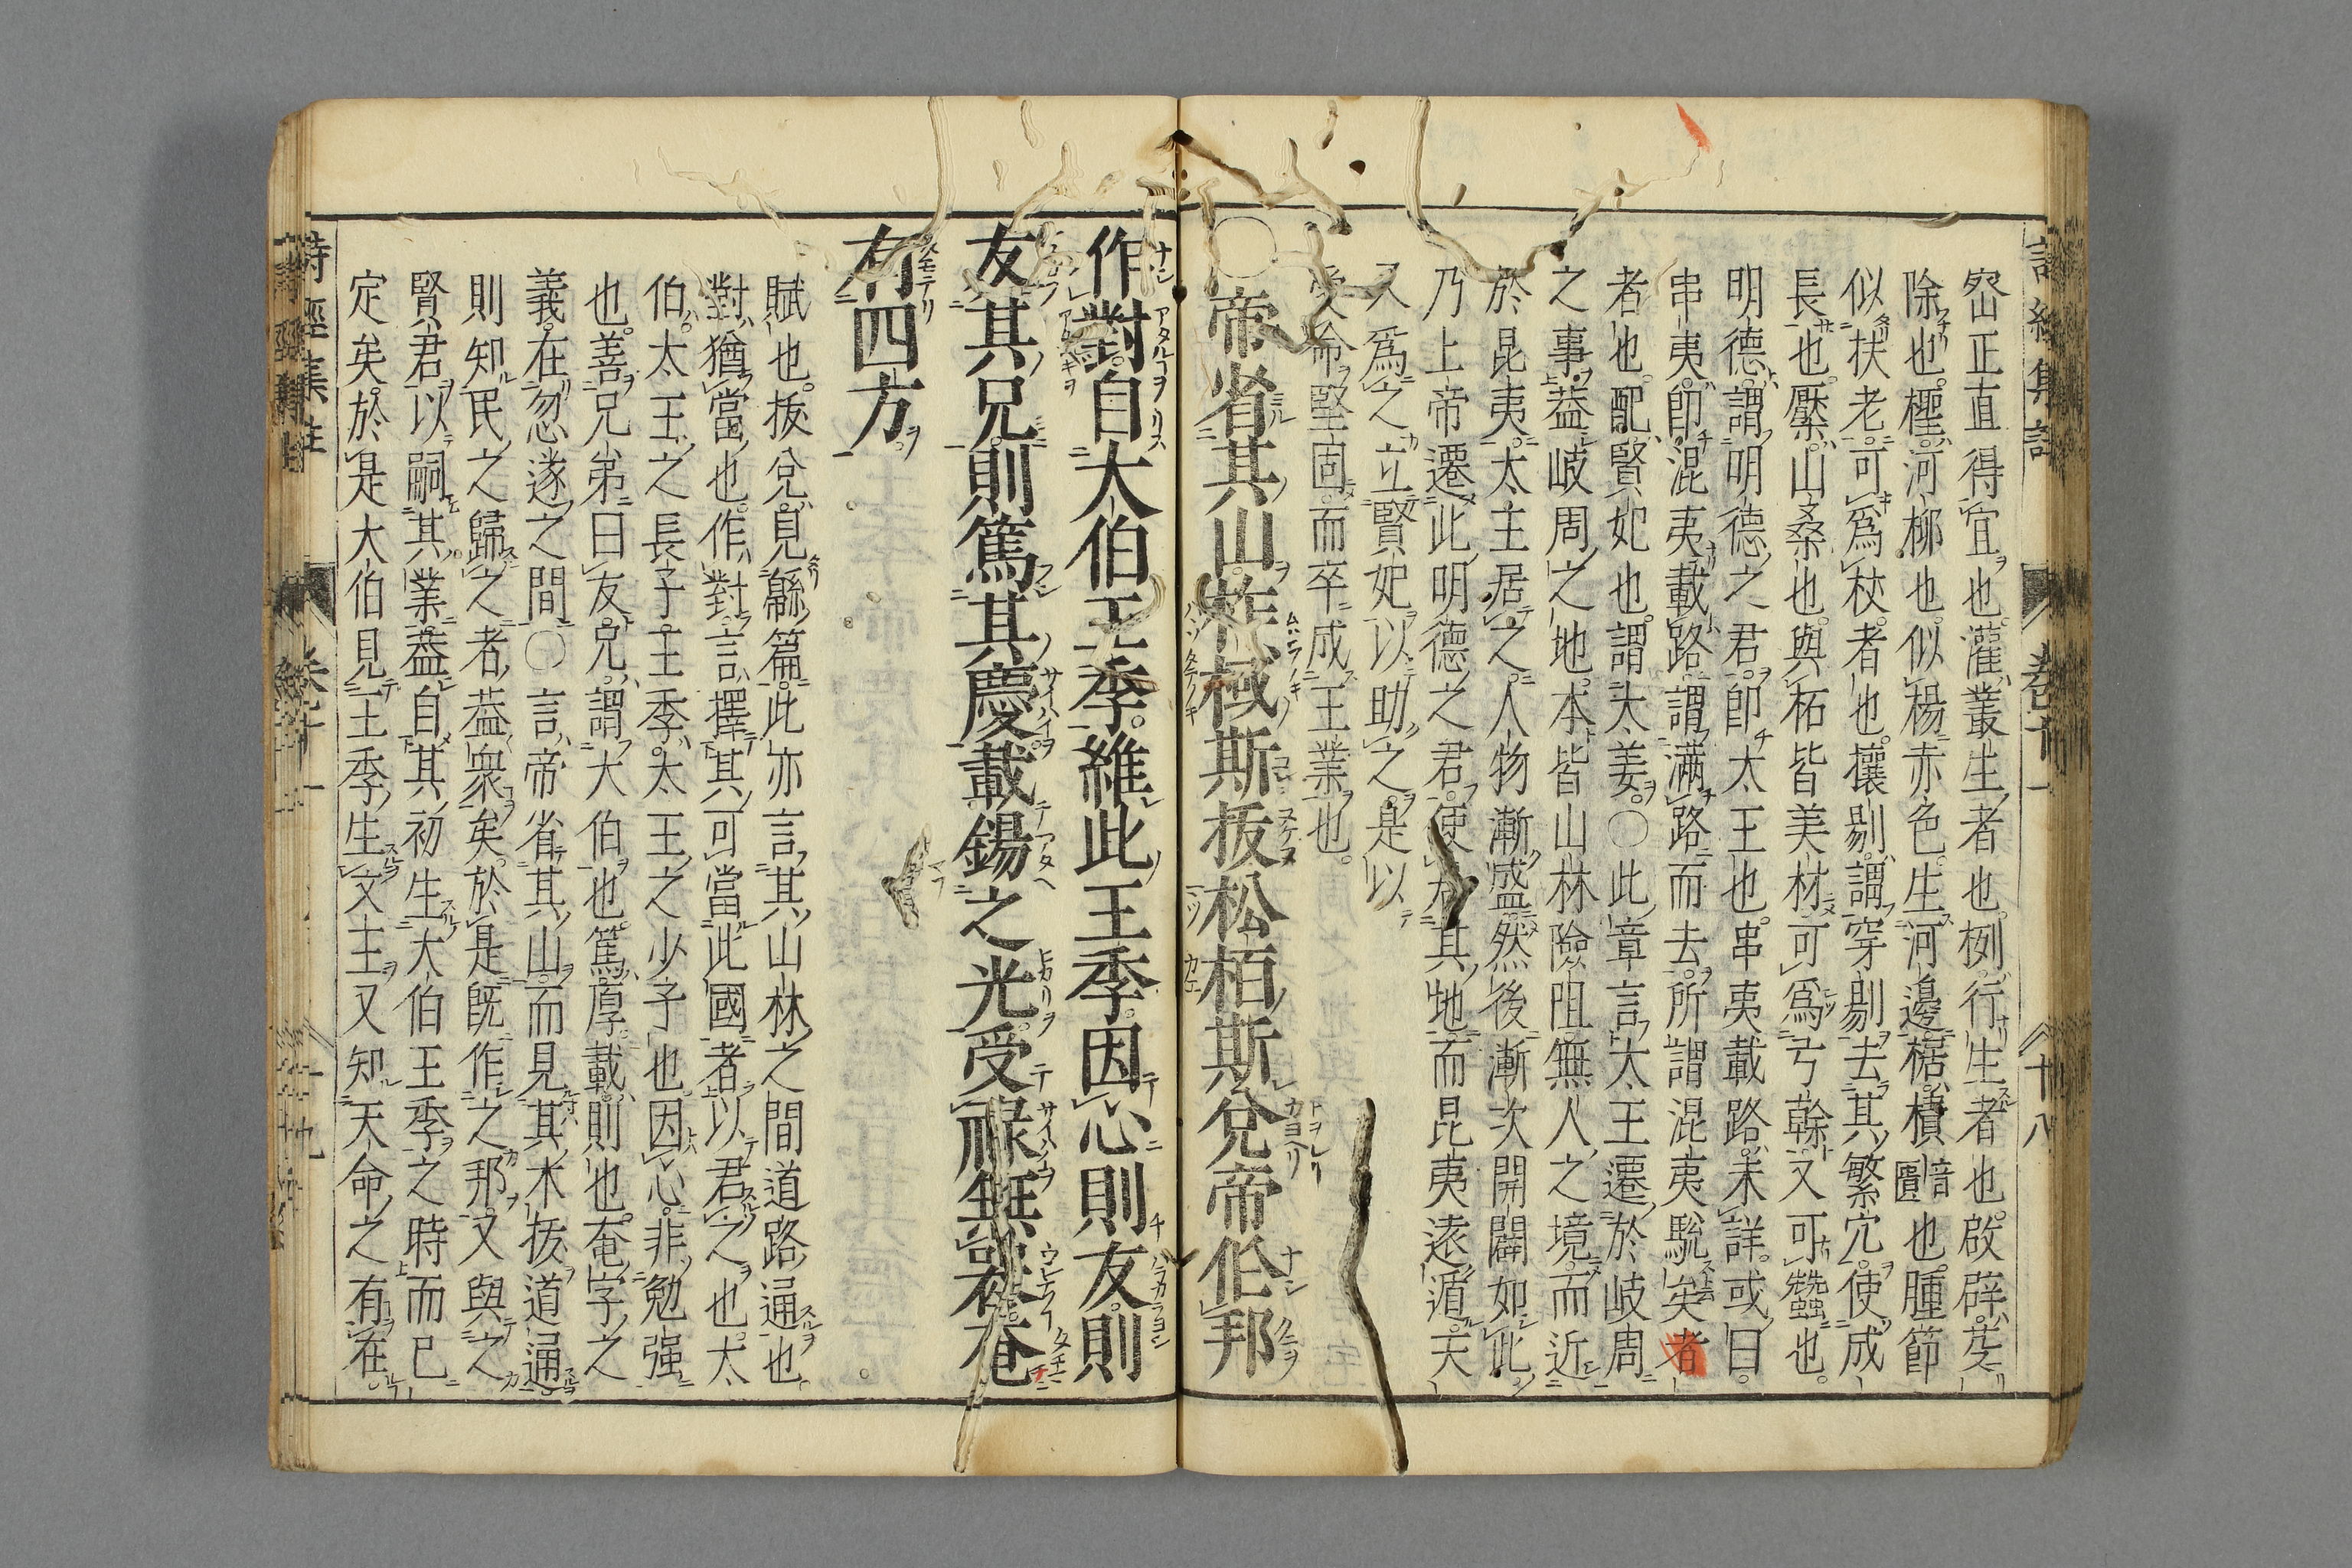 詩經集註 卷十一 十八
密正直得宜也。灌叢生者也。栵行生者也。啟辟芟
除也。檉河柳也。似楊赤色。生河邊。椐樻匱音也。腫節
似扶老。可爲杖者也。攘剔。謂穿剔去其繁冗。使成
長也。檿。山桑也。與柘皆美材。可爲弓幹。又可蠶也。
明德。謂明德之君。卽太王也。串夷載路。未詳。或曰。
串夷。卽混夷。載路。謂滿路而去。所謂混夷駾矣者
者也。配。賢妃也。謂太姜。○此章言大王遷於岐周
之事。蓋岐周之地。本皆山林險阻無人之境。而近
於昆夷。太王居之。人物漸盛。然後漸次開闢如此。
乃上帝遷此明德之君。使居其地。而昆夷遠遁。天
又爲之立賢妃以助之。是以
受命堅固。而卒成王業也。
○帝省其山。柞棫斯拔。松栢斯兌。帝作邦
作對。自大伯王季。維此王季。因心則友。則
友其兄。則篤其慶。載錫之光。受祿無喪。奄
有四方。
賦也。拔兌。見緜篇。此亦言其山林之間道路通也。
對。猶當也。作對。言擇其可當此國者。以君之也。太
伯。太王之長子。王季。太王之少子也。因心。非勉强
也。善兄弟曰友。兄。謂大伯也。篤。厚。載。則也。奄字之
義。在忽遂之間○言帝省其山。而見其木拔道通。
則知民之歸之者。益衆矣。於是旣作之邦。又與之
賢君以嗣其業。蓋自其初生大伯王季之時而已
定矣。於是大伯見王季生文王。又知天命之有在。
詩經集註 卷十一 十九